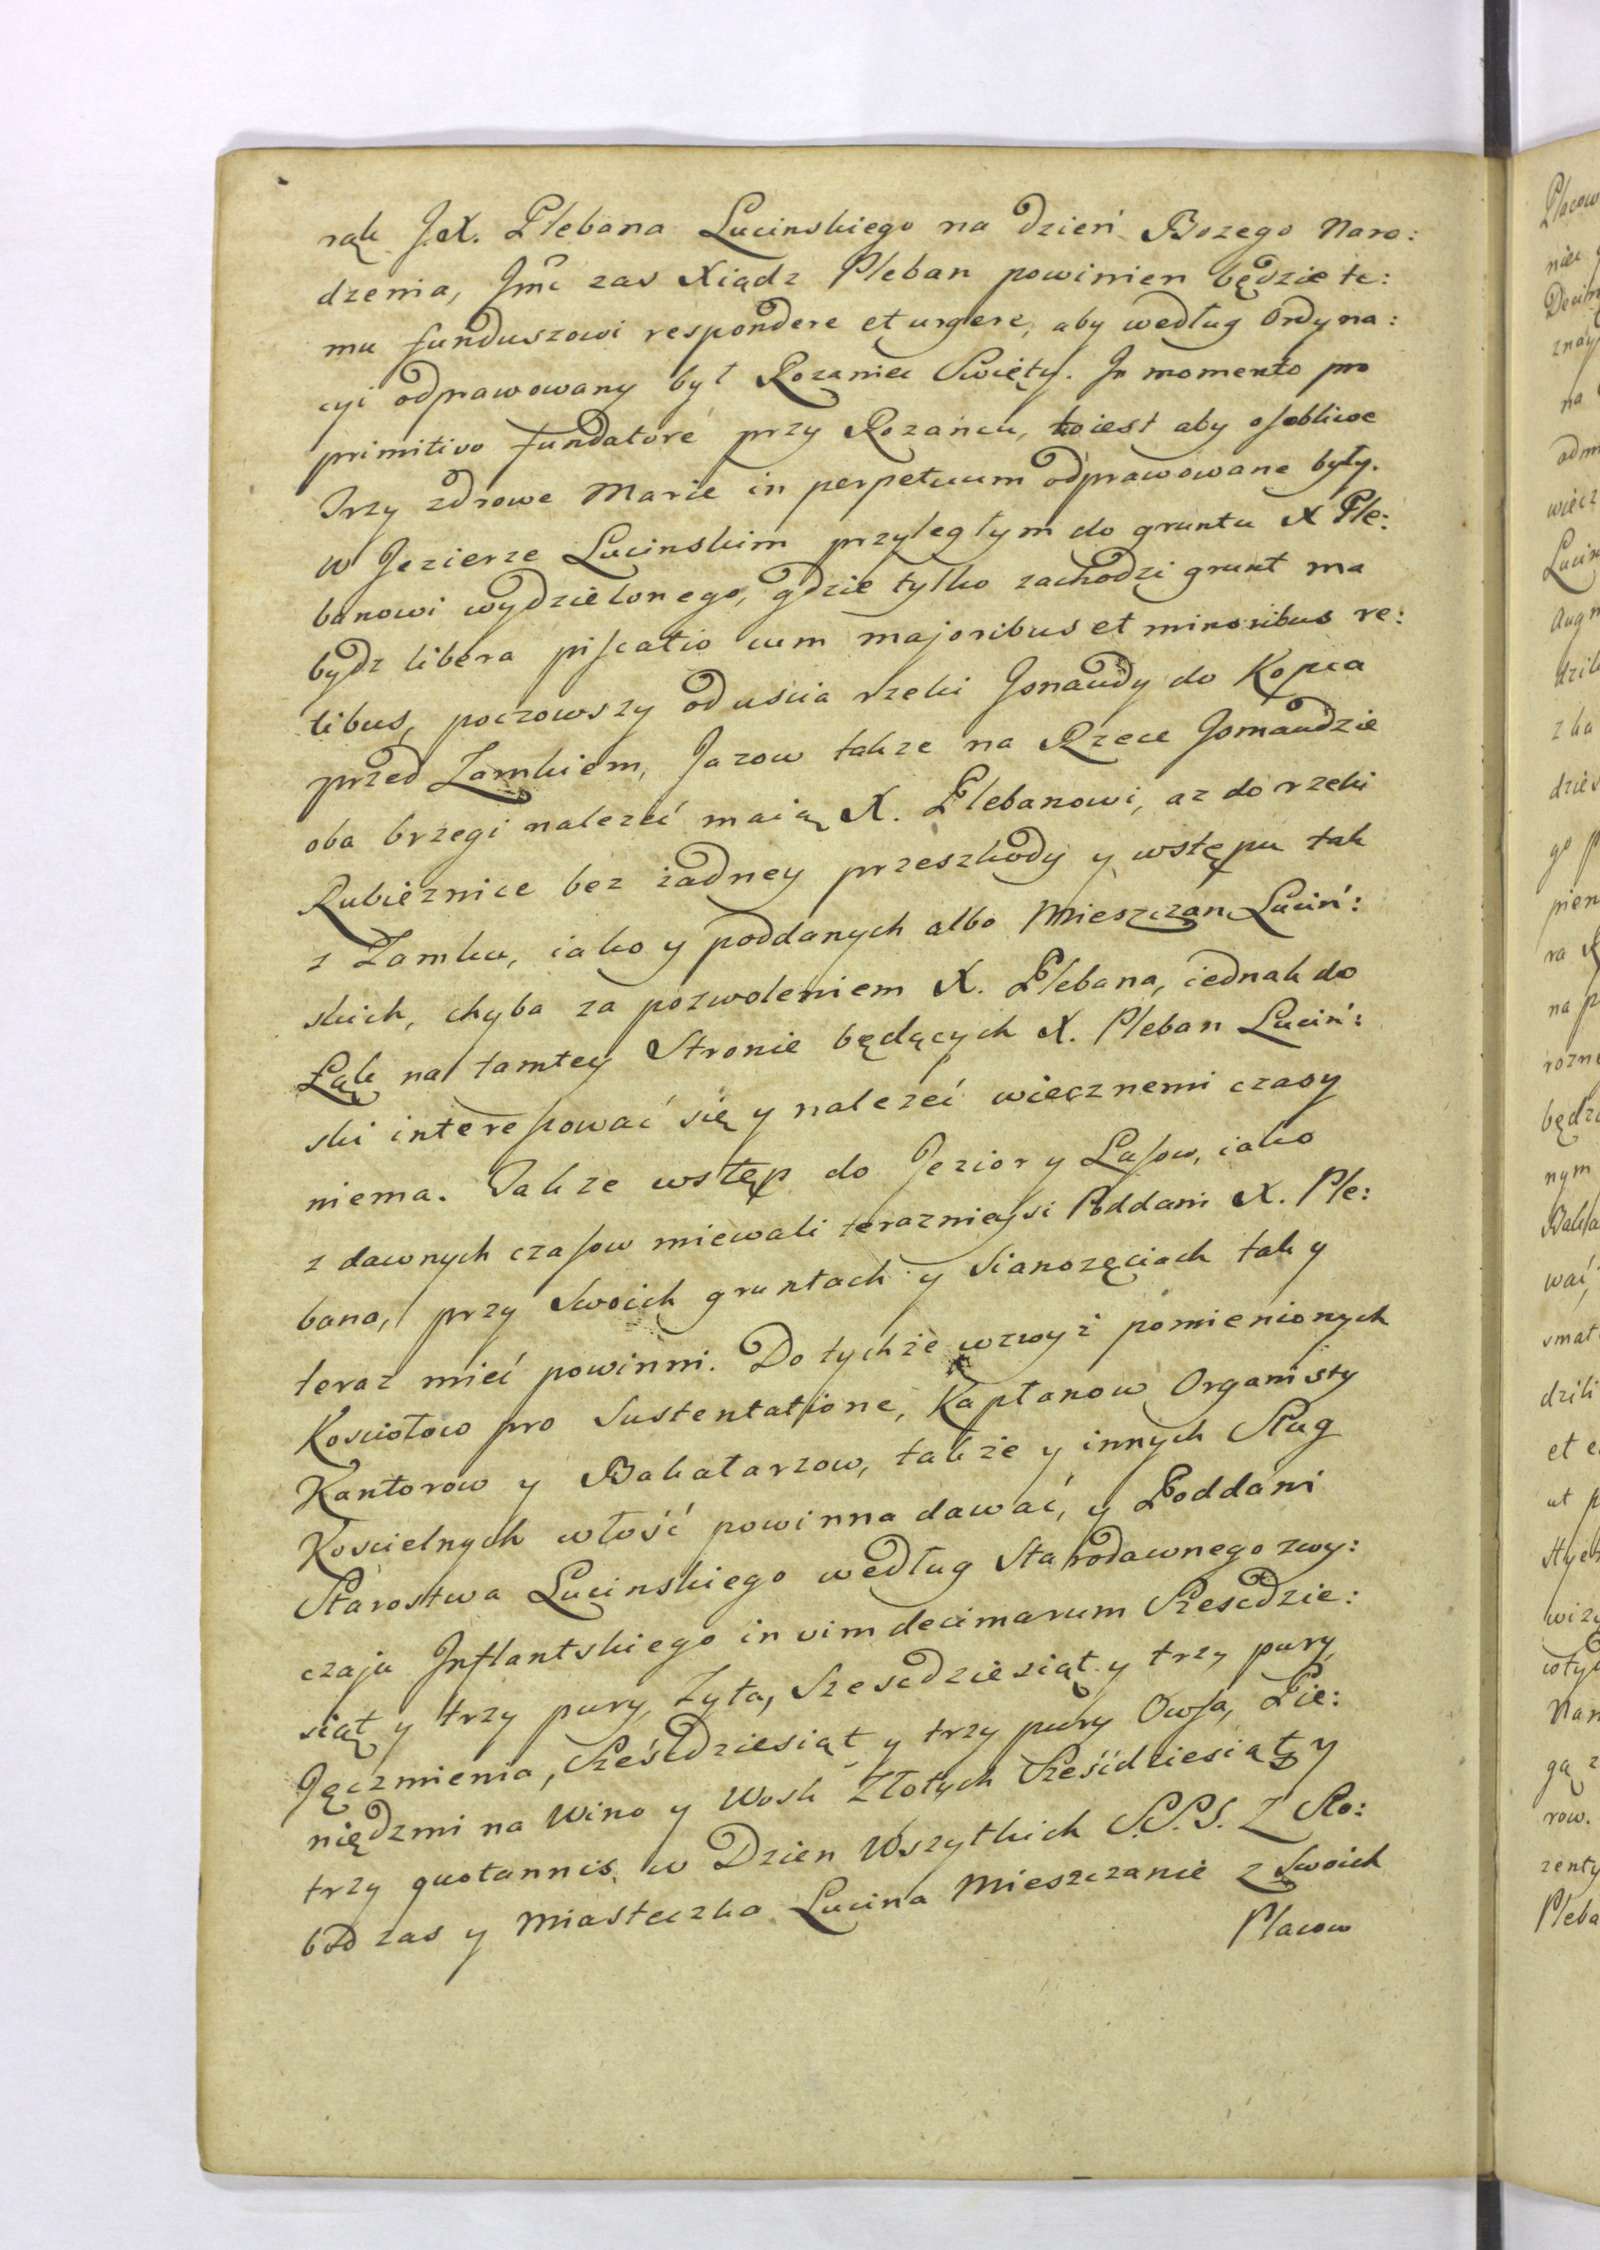 rąk J.X. Plebana Lucinskiego na dzień Bozego Naro:
dzenia, Jmć zas Xiądz Pleban powinien będzie te:
mu funduszowi respondere et urgere, aby według Ordyna:
cyi odprawowany był Rozaniec Swięty. In momento pro
primitivo fundatore przy Rozańcu, toiest aby osobliwe
Trzy zdrowe Marie in perpetuum odprawowane były.
W Jezierze Lucinskim przyległym do gruntu X Ple:
banowi wydzielonego, gdzie tylko zachodzi grunt ma
bydz libera piscatio cum majoribus et minoribus re:
tibus, poczowszy od uscia rzeki Jsnaudy do Kopca
przed Zamkiem, Jazow takze na Rzece Jsmaudzie
oba brzegi nalezeć maią X. Plebanowi, az do rzeki
Rubieznice bez żadney przeszkody y wstępu tak
z Zamku, iako y poddanych albo Mieszczan Luciń:
skich, chyba za pozwoleniem X. Plebana, iednak do
Łąk na tamtey Stronie będących X. Pleban Luciń:
ski interesować się y nalezeć wiecznemi czasy
niema. Takze wstęp do Jezior y Lasow, iako
z dawnych czasow miewali teraznieysi Poddani X. Ple:
bana, przy Swoich gruntach y Sianozęciach tak y
teraz mieć powinni. Do tychże wzwyż pomienionych
Kosciołow pro Sustentatione, Kapłanow Organisty
Kantorow y Bakałarzow, także y innych Sług
Koscielnych włość powinna dawać, y Poddani
Starostwa Lucinskiego według Starodawnego zwy:
czaju Inflantskiego in vim decimarum Szescdzie:
siąt y trzy pury Zyta, Szescdziesiąt y trzy pury
Jęczmienia, Sześcdziesiąt y trzy pury Owsa, Pie:
niędzmi na Wino y Wosk Złotych Sześćdziesiąt y
trzy quotannis w Dzien Wszytkich S.S.S. Z Sło:
bod zas y Miasteczka Lucina Mieszczanie z Swoich
Placow